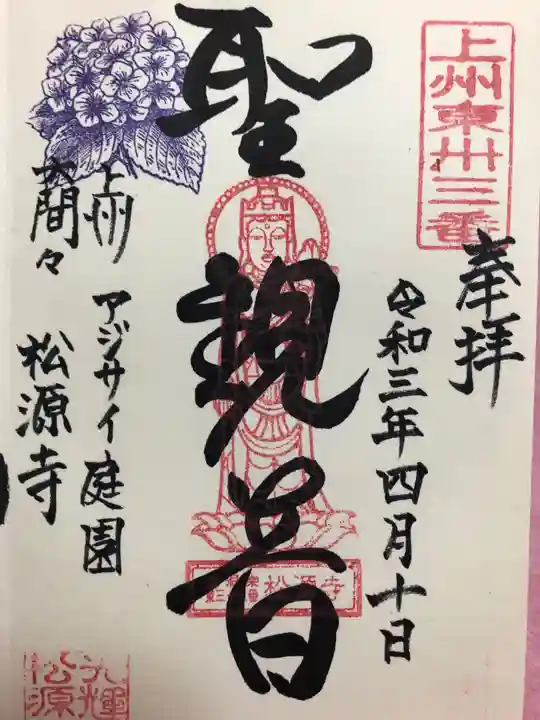 上州東卅三番
奉拝
令和三年四月十日
聖観音
松源寺
上州 アジサイ庭園
大間々 松源寺